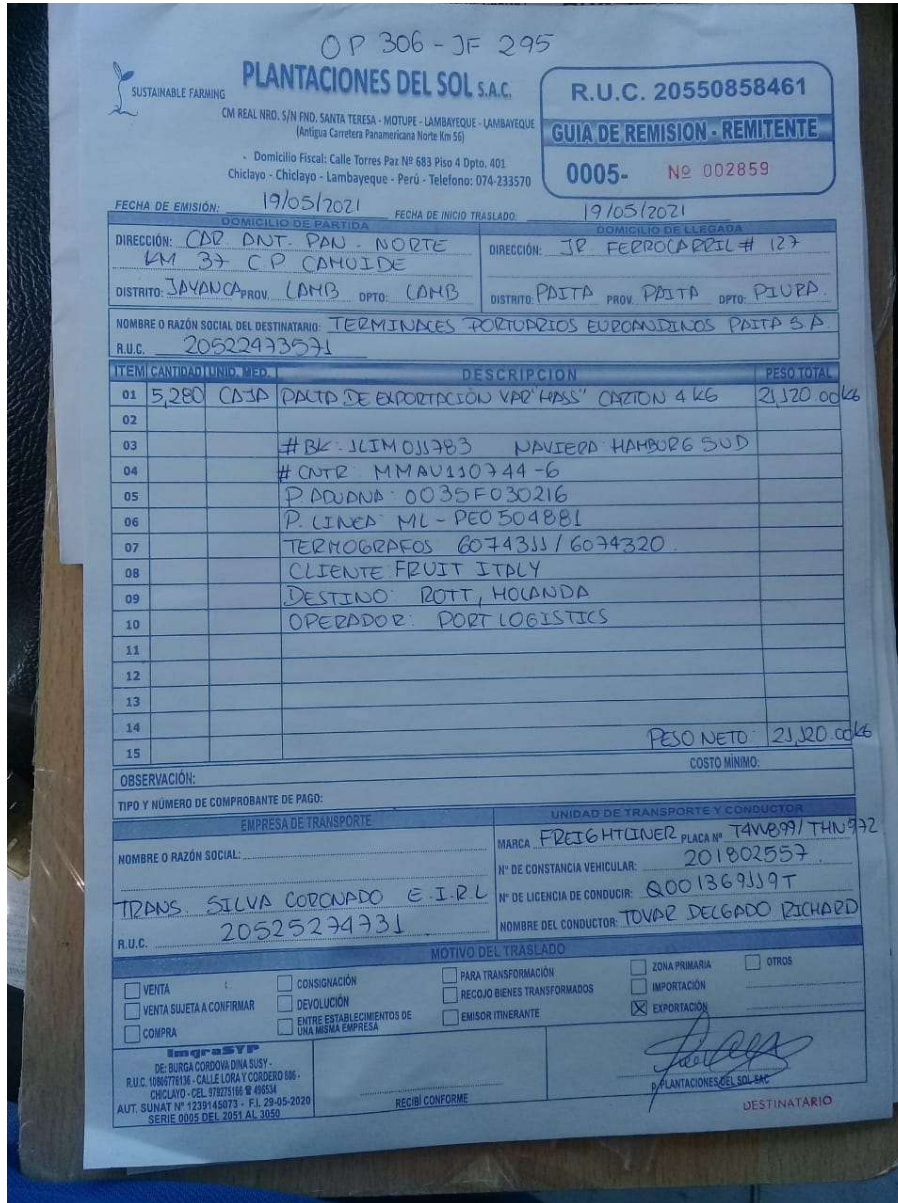 OP 306 - JF 295
SUSTAINABLE FARMING
PLANTACIONES DEL SOL S.A.C.
CM REAL NRO. S/N FND. SANTA TERESA - MOTUPE - LAMBAYEQUE - LAMBAYEQUE
(Antigua Carretera Panamericana Norte Km 56)
Domicilio Fiscal: Calle Torres Paz Nº 683 Piso 4 Dpto. 401
Chiclayo - Chiclayo - Lambayeque - Perú - Telefono: 074-233570
R.U.C. 20550858461
GUIA DE REMISION - REMITENTE
0005- Nº 002859
FECHA DE EMISIÓN: 19/05/2021 FECHA DE INICIO TRASLADO: 19/05/2021
DOMICILIO DE PARTIDA
DIRECCIÓN: CAR. ANT. PAN. NORTE
KM 37 C.P CAHUIDE
DISTRITO: JAYANCA PROV. LAMB DPTO: LAMB
DOMICILIO DE LLEGADA
DIRECCIÓN: JR. FERROCARRIL # 127
DISTRITO: PAITA PROV. PAITA DPTO: PIURA.
NOMBRE O RAZÓN SOCIAL DEL DESTINATARIO: TERMINALES PORTUARIOS EUROANDINOS PAITA S A.
R.U.C. 20522473571
ITEM CANTIDAD UNID. MED. DESCRIPCION PESO TOTAL
01 5,280 CAJA PALTA DE EXPORTACIÓN VAR "HASS" CARTON 4 KG 21,120.00 KG
02
03 # BK: 1LIM011783 NAVIERA: HAMBURG SUD
04 # CNTR: MMAU110744-6
05 P. ADUANA: 0035F030216
06 P. LINEA: ML-PE0504881
07 TERMOGRAFOS: 6074311/6074320.
08 CLIENTE: FRUIT ITALY
09 DESTINO: ROTT, HOLANDA
10 OPERADOR: PORT LOGISTICS
11
12
13
14
15 PESO NETO: 21,120.00 KG
OBSERVACIÓN: COSTO MÍNIMO:
TIPO Y NÚMERO DE COMPROBANTE DE PAGO:
EMPRESA DE TRANSPORTE
NOMBRE O RAZÓN SOCIAL:
TRANS. SILVA CORONADO E.I.R.L
R.U.C. 20525274731
UNIDAD DE TRANSPORTE Y CONDUCTOR
MARCA FREIGHTLINER PLACA Nº T4W899/THN972
Nº DE CONSTANCIA VEHICULAR: 201802557.
Nº DE LICENCIA DE CONDUCIR: Q001369119T
NOMBRE DEL CONDUCTOR: TOVAR DELGADO RICHARD
MOTIVO DEL TRASLADO
VENTA CONSIGNACIÓN PARA TRANSFORMACIÓN ZONA PRIMARIA OTROS
VENTA SUJETA A CONFIRMAR DEVOLUCIÓN RECOJO BIENES TRANSFORMADOS IMPORTACIÓN
COMPRA ENTRE ESTABLECIMIENTOS DE UNA MISMA EMPRESA EMISOR ITINERANTE EXPORTACIÓN
ImgraSYP
DE: BURGA CORDOVA DINA SUSY -
R.U.C. 10806776136 - CALLE LORA Y CORDERO 886 -
CHICLAYO - CEL. 979275166 ☎ 496534
AUT. SUNAT Nº 1239145073 - F.I. 29-05-2020
SERIE 0005 DEL 2051 AL 3050
RECIBÍ CONFORME
p. PLANTACIONES DEL SOL SAC
DESTINATARIO